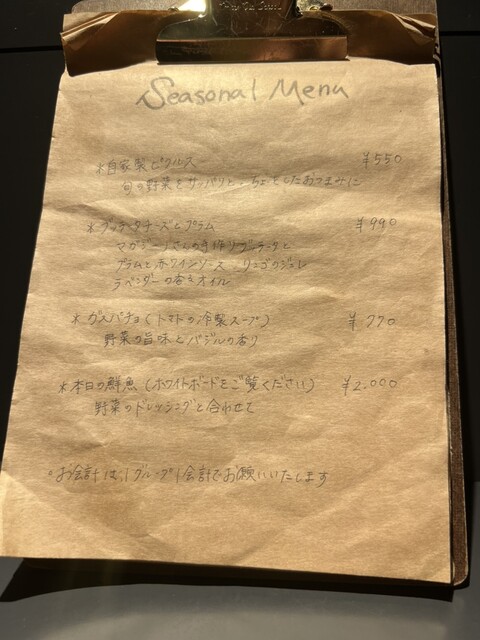 Seasonal Menu
*自家製ピクルス ¥550
旬の野菜をサッパリと、ちょっとしたおつまみに
*ブッラータチーズとプラム ¥990
マガジーノさんの手作りブッラータと
プラムと赤ワインソース リンゴのジュレ
ラベンダーの香るオイル
*ガスパチョ(トマトの冷製スープ) ¥770
野菜の旨味とバジルの香り
*本日の鮮魚(ホワイトボードをご覧ください) ¥2,000
野菜のドレッシングと合わせて
。お会計は、1グループ1会計でお願いいたします